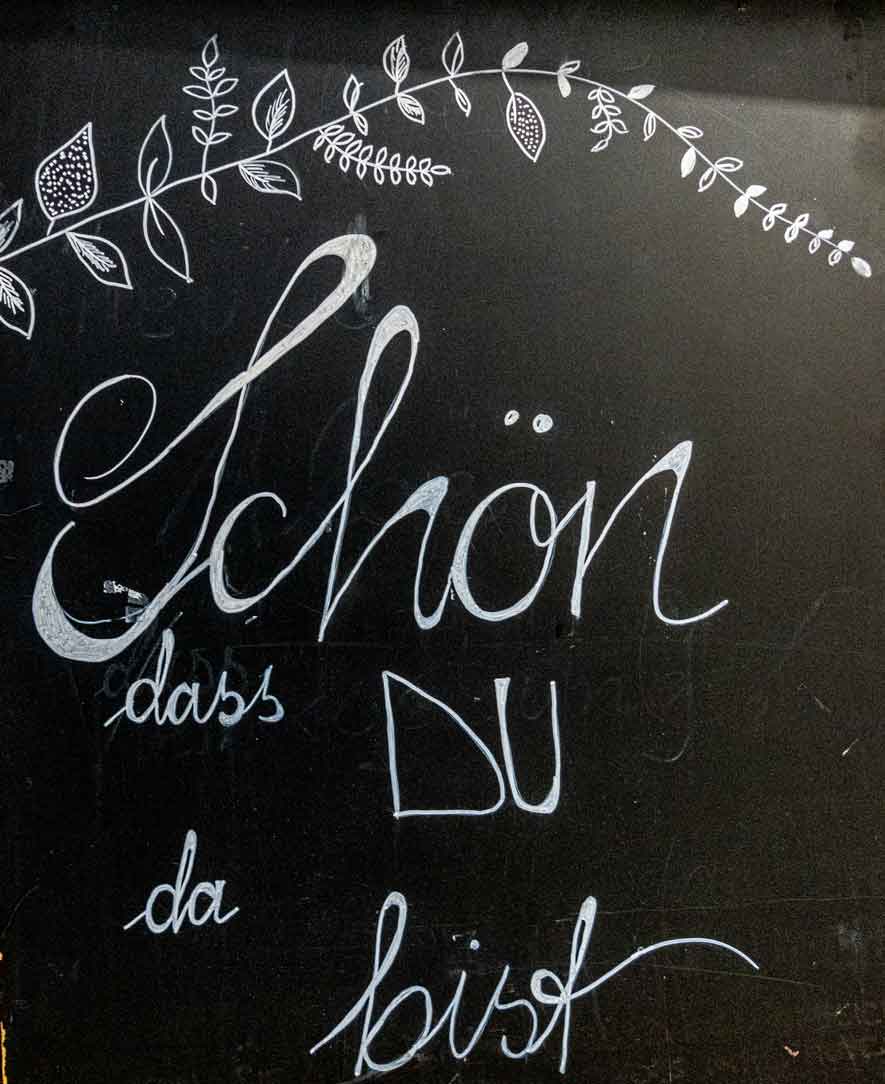 Schön
dass DU
da
bist